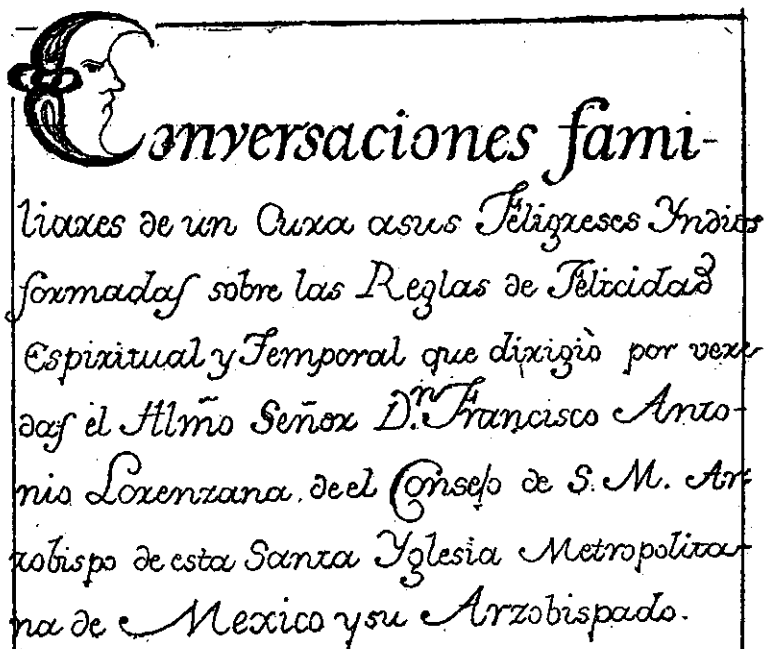 Conversaciones fami-
liares de un Cura asus Feligreses Yndios
formadas sobre las Reglas de Felicidad
Espiritual y Temporal que dirigiò por vere-
das el Illmo Señor Dn. Francisco Anto-
nio Lorenzana, de el Consejo de S. M. Ar-
zobispo de esta Santa Yglesia Metropolita-
na de Mexico y su Arzobispado.